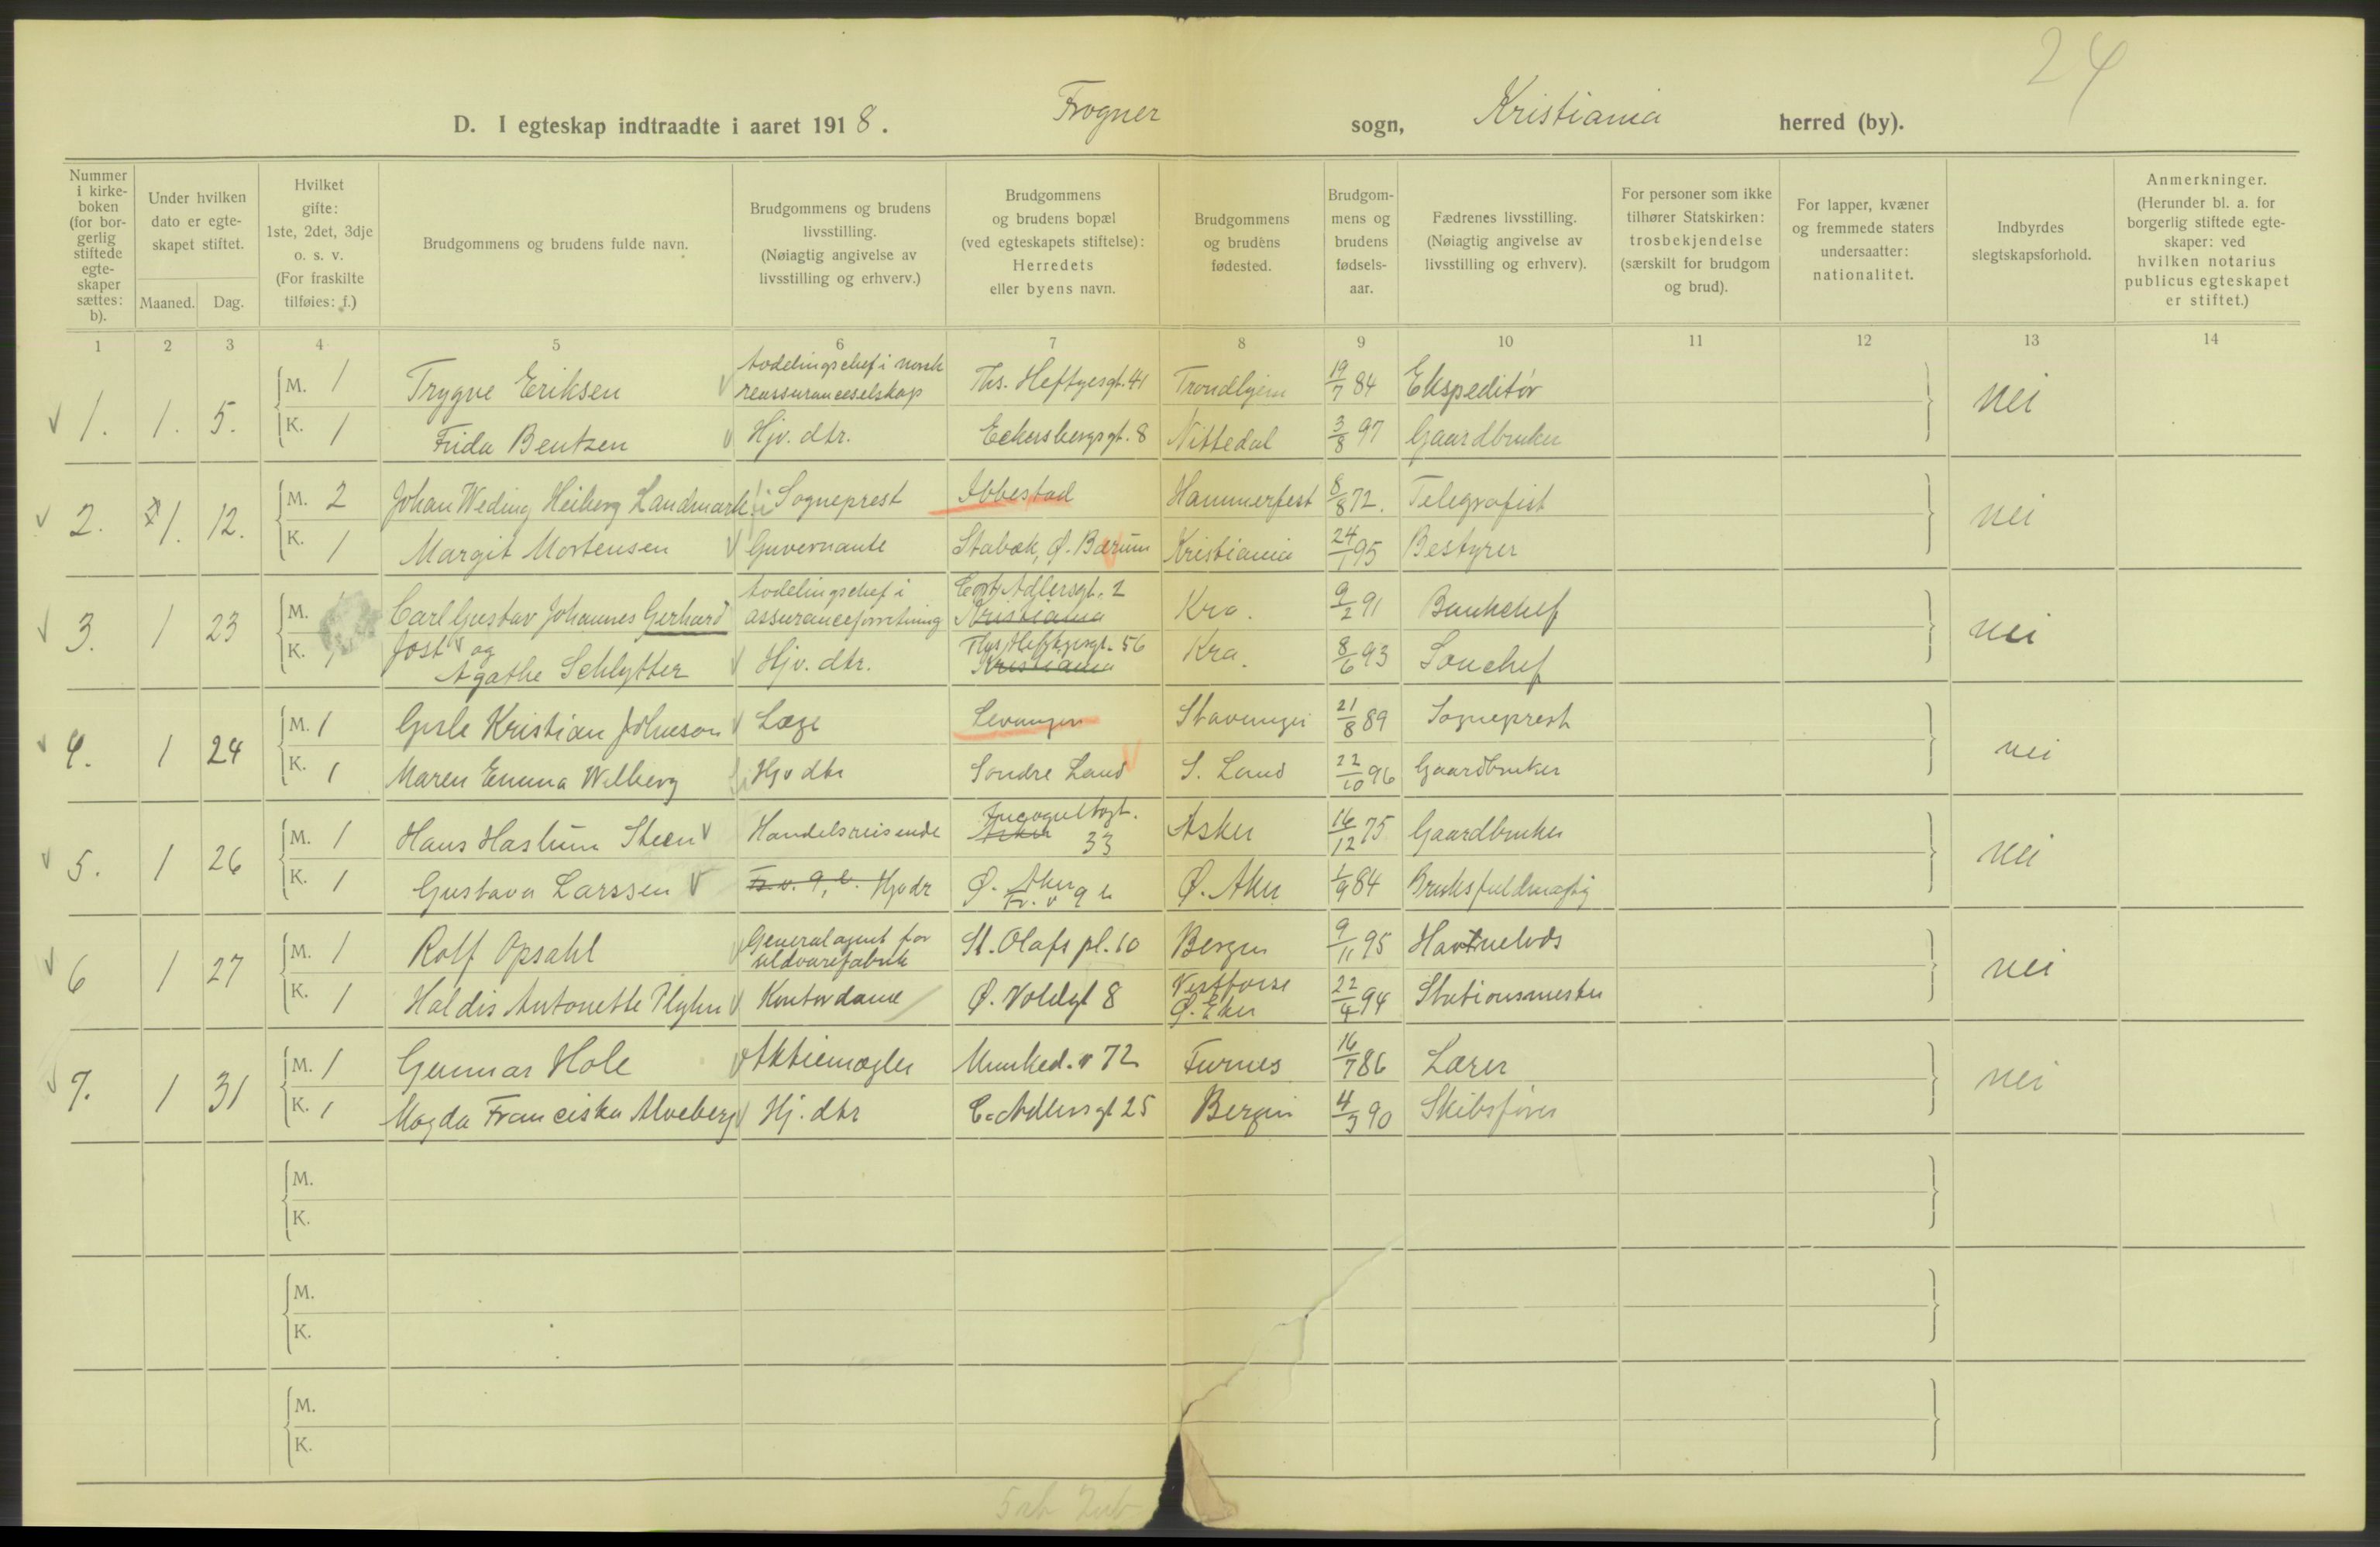 24
D. I egteskap indtraadte i aaret 1918. Frogner sogn, Kristiania herred (by).
Nummer i kirke- boken (for bor- gerlig stiftede egte- skaper sættes: b).
Under hvilken dato er egte- skapet stiftet.
Maaned. Dag.
Hvilket gifte: 1ste, 2det, 3dje o. s. v. (For fraskilte tilføies: f.)
Brudgommens og brudens fulde navn.
Brudgommens og brudens livsstilling. (Nøiagtig angivelse av livsstilling og erhverv.)
Brudgommens og brudens bopæl (ved egteskapets stiftelse): Herredets eller byens navn.
Brudgommens og brudens fødested.
Brudgom- mens og brudens fødsels- aar.
Fædrenes livsstilling. (Nøiagtig angivelse av livsstilling og erhverv).
For personer som ikke tilhører Statskirken: trosbekjendelse (særskilt for brudgom og brud).
For lapper, kvæner og fremmede staters undersaatter: nationalitet.
Indbyrdes slegtskapsforhold.
Anmerkninger. (Herunder bl. a. for borgerlig stiftede egte- skaper: ved hvilken notarius publicus egteskapet er stiftet.)
1 2 3 4 5 6 7 8 9 10 11 12 13 14
1. 1. 5. M. 1 Trygve Eriksen Avdelingschef i norsk reassuranceselskap Ths. Heftyesgt. 41 Trondhjem 19/7 84 Ekspeditør nei
K. 1 Frida Bentzen Hjv. dtr. Eckersbergsgt. 8 Nittedal 3/8 97 Gaardbruker
2. 1. 12. M. 2 Johan Weding Heiberg Landmark Sogneprest Ibbestad Hammerfest 8/8 72. Telegrafist nei
K. 1 Margit Mortensen Guvernante Stabæk, Ø. Bærum Kristiania 24/1 95 Bestyrer
3. 1 23 M. Carl Gustav Johannes Gerhard Avdelingschef i assuranceforretning Cort Adlersgt. 2 Kristiania Kra. 9/2 91 Bankchef nei
K. Jost og Agathe Schlytter Hjv. dtr. Ths. Heftyesgt. 56 Kristiania Kra. 8/6 93 Souchef
4. 1 24 M. 1 Gisle Kristian Johnson Læge Levanger Stavanger 21/8 89 Sogneprest nei
K. 1 Maren Emma Wilberg Hjv dtr Søndre Land S. Land 22/10 96 Gaardbruker
5. 1 26 M. 1 Hans Haslum Steen Handelsreisende Incognitogt. Asker 33 Asker 16/12 75 Gaardbruker nei
K. 1 Gustava Larssen Fr. v. 9, b. Hjv dr Ø. Aker Fr. v 9 b Ø. Aker 1/9 84 Bruksfuldmægtig
6 1 27 M. 1 Rolf Opsahl Generalagent for uldvarefabrik St. Olafs pl. 10 Bergen 9/11 95 Havnelods nei
K. 1 Haldis Antonette Kontordame Ø. Voldgt 8 Vestfosse Ø. Eker 22/4 94 Stationsmester
7. 1 31 M. 1 Gunnar Hole Aktiemægler Munked. v 72 Furnes 16/7 86 Lærer nei
K. 1 Magda Franciska Alveberg Hj. dtr C. Adlersgt 25 Bergen 4/3 90 Skibsfører
M.
K.
M.
K.
M.
K.